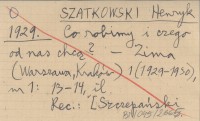 SZATKOWSKI Henryk
1929. Co robimy i czego
od nas chcą? – Zima
(Warszawa, Kraków) 1 (1929-1930),
nr 1: 13-14, il.
Rec.: [Szczepański